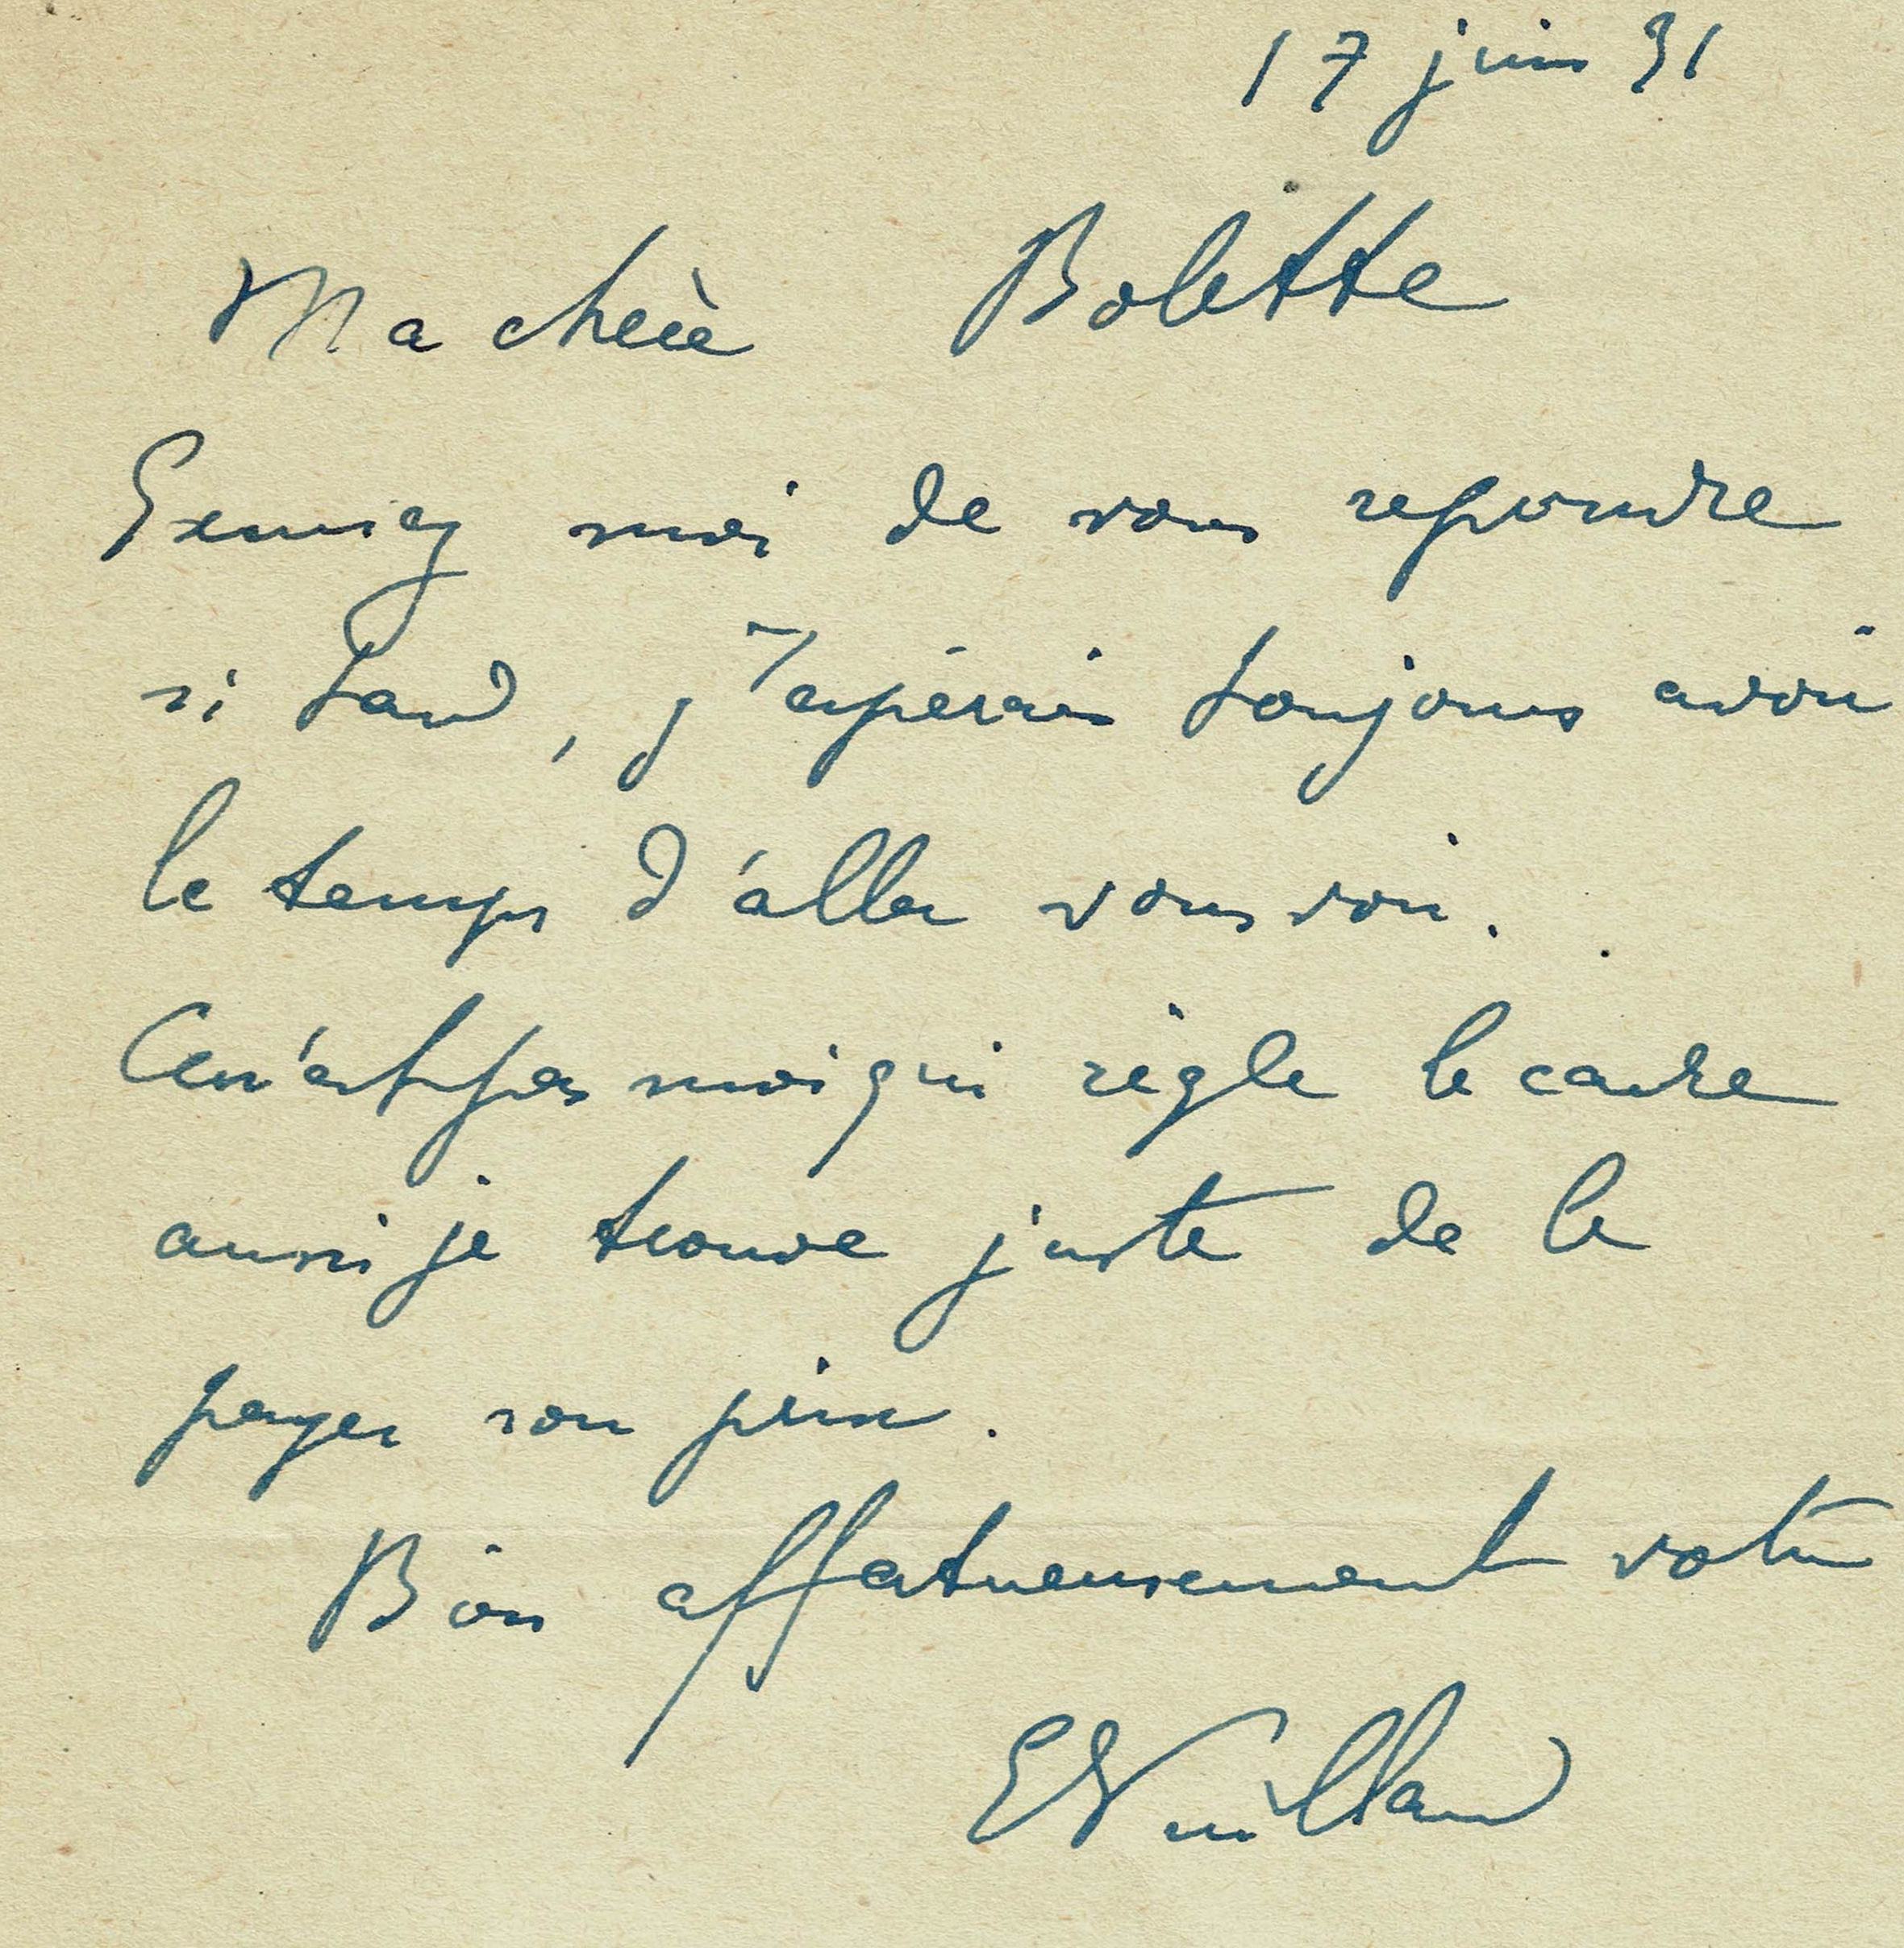 17 juin 31
Ma chère Bolette
Excusez moi de vous repondre
si tard, j'espérais toujours avoir
le temps d'aller vous voir.
Ce n'est pas moi qui règle le cadre
aussi je trouve juste de le
payer son prix.
Bien affectueusement votre
EVuillard